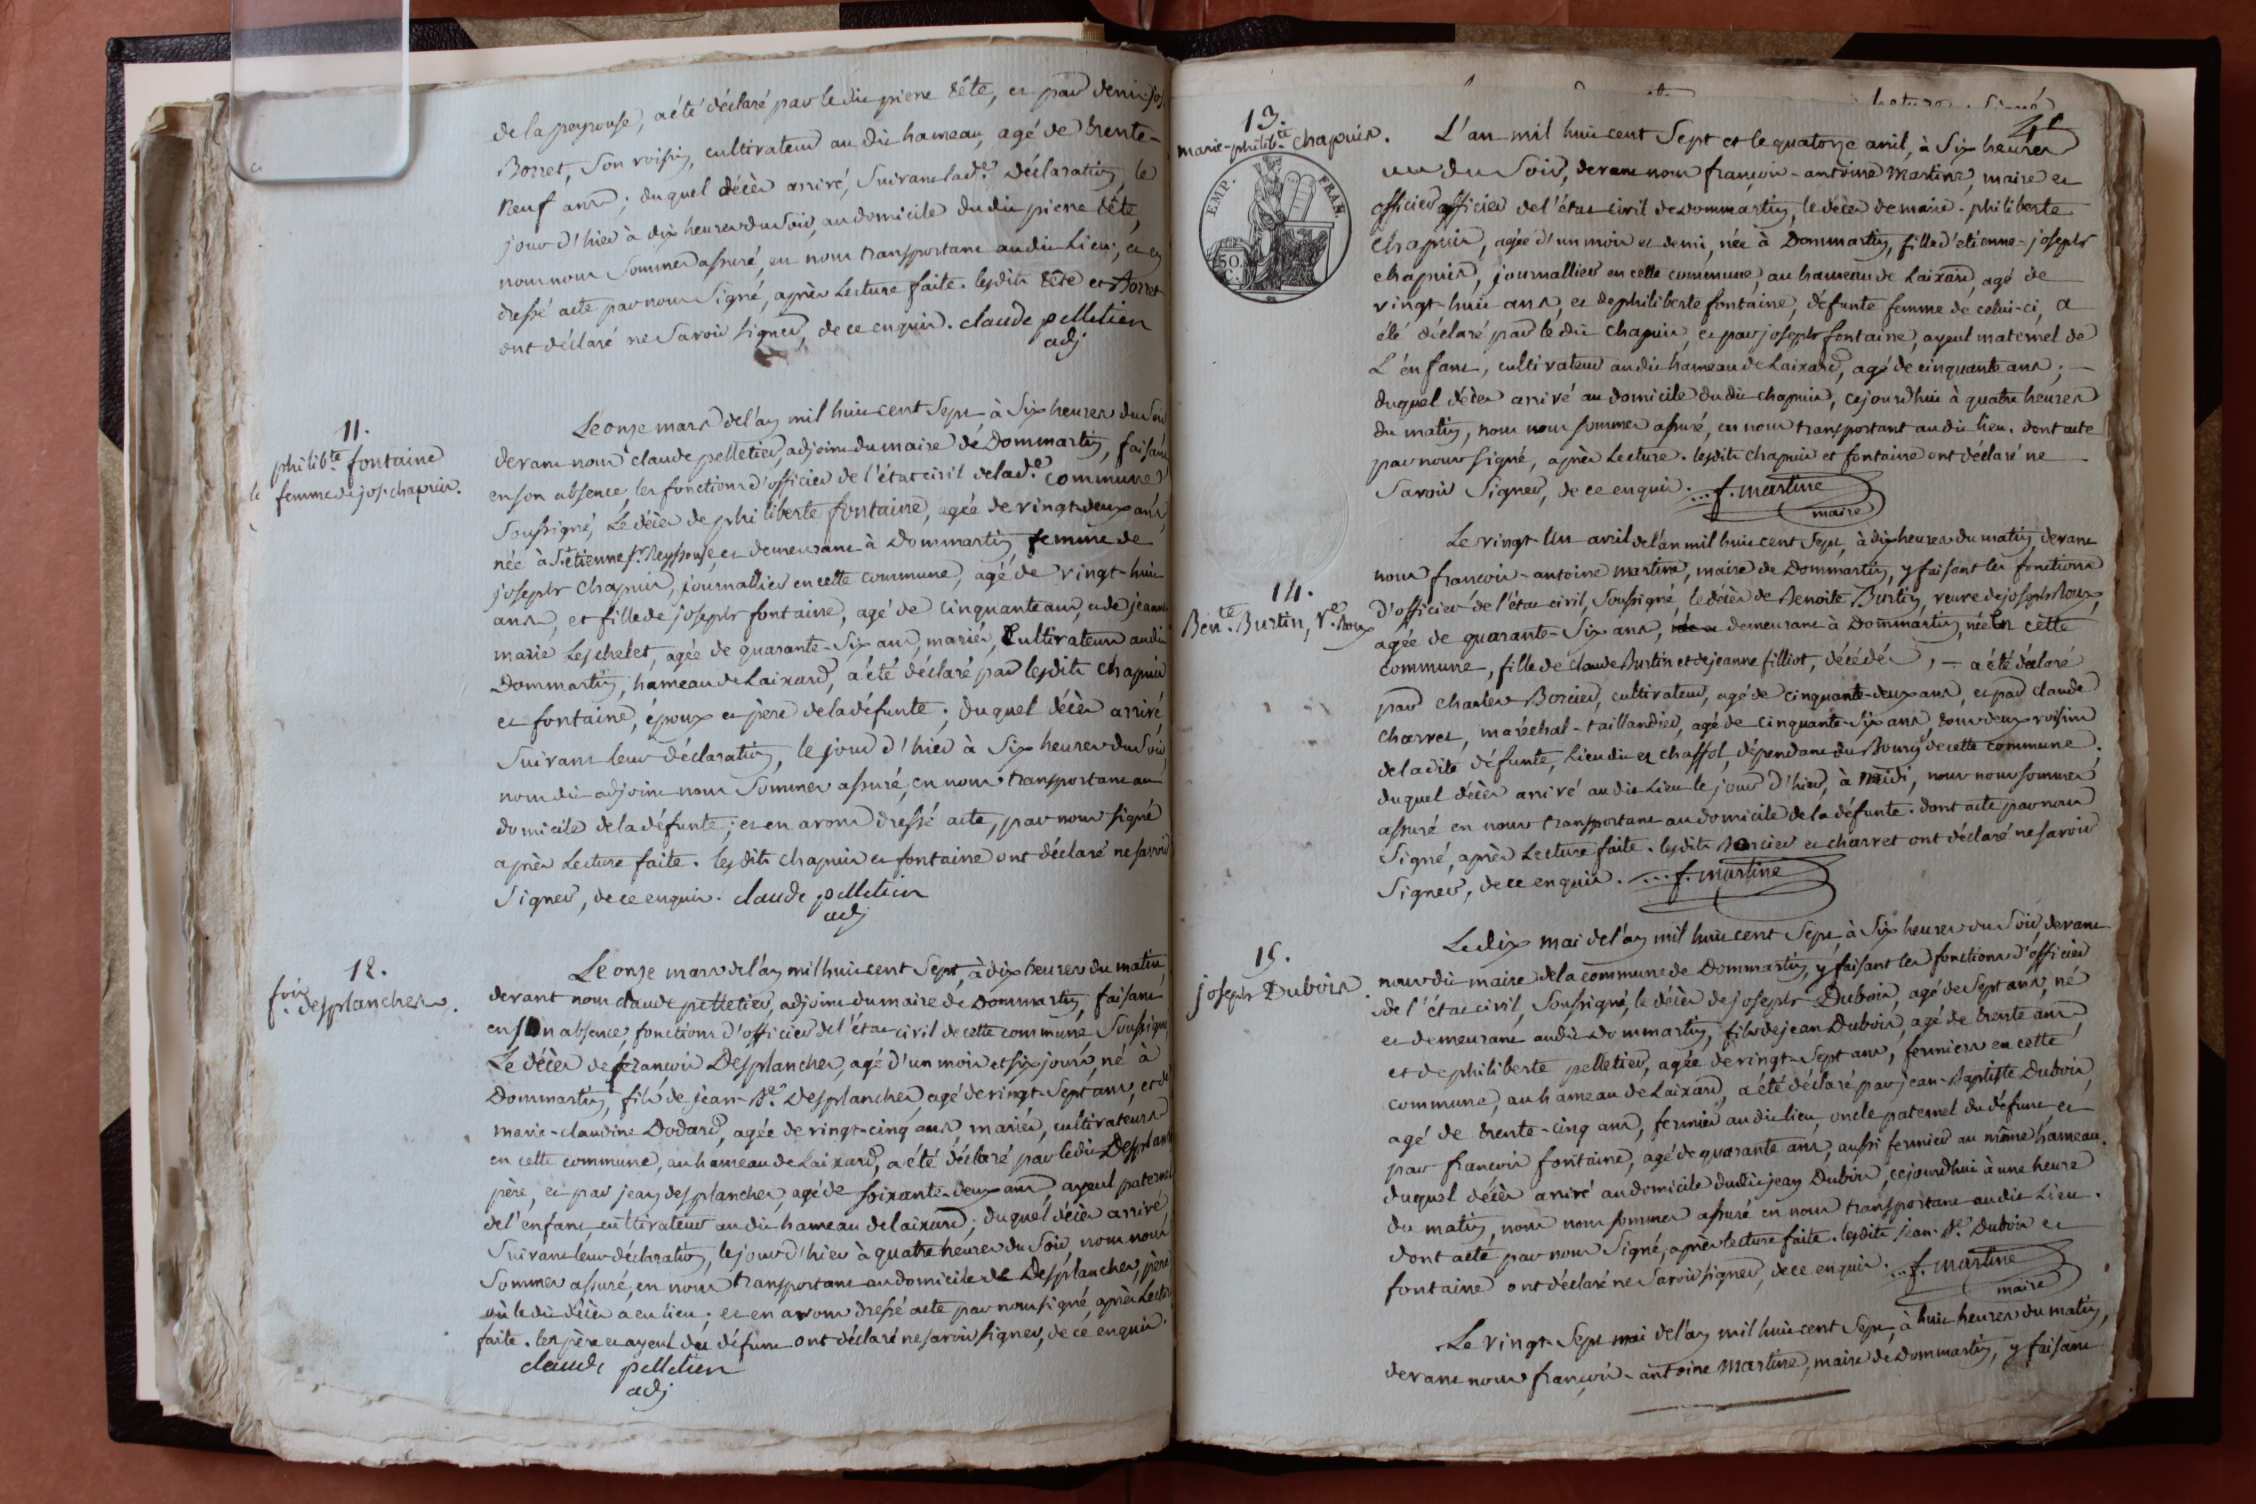 de la peyrouse, a été déclaré par le dit pierre tête, et par denis jos
Borret, son voisin, cultivateur au dit hameau, agé de trente-
neuf ans ; duquel décès arrivé, suivant lade. déclaration, le
jour d'hier à dix heures du soir, au domicile du dit pierre tête,
nous nous sommes assuré, en nous transportant au dit lieu ; et en
dressé acte par nous signé, après lecture faite. lesdits tête et Borret
ont déclaré ne savoir signer, de ce enquis. claude pelletier
adj
11.
philibte. fontaine
femme de jos. chapuis.
Le onze mars de l'an mil huit cent sept, à six heures du soir
devant nous claude pelletier, adjoint du maire de Dommartin, faisant
en son absence, les fonctions d'officier de l'état civil de lade. commune
soussigné, Le décès de philiberte fontaine, agée de vingt-deux ans,
née à St. étienne sr. Reyssouse, et demeurant à Dommartin, femme de
joseph chapuis, journallier en cette commune, agé de vingt-huit
ans, et fille de joseph fontaine, agé de cinquante ans, et de jeanne
marie Leschelet, agée de quarante-six ans, mariés, Cultivateurs audit
Dommartin, hameau de Laixard, a été déclaré par lesdits chapuis
et fontaine, époux et père de la défunte ; duquel décès arrivé,
suivant leur déclaration, le jour d'hier à six heures du soir,
nous dit adjoint nous sommes assuré, en nous transportant au
domicile de la défunte ; et en avons dressé acte, par nous signé
après lecture faite. lesdits chapuis et fontaine ont déclaré ne savoir
signer, de ce enquis. claude pelletier
adj
12.
fois. desplanches.
Le onze mars de l'an mil huit cent sept, à dix heures du matin,
devant nous claude pelletier, adjoint du maire de Dommartin, faisant
en son absence, fonctions d'officier de l'état civil de cette commune, soussigné,
Le décès de françois Desplanches, agé d'un mois et six jours, né à
Dommartin, fils de jean-Bte. Desplanches, agé de vingt-sept ans, et de
marie-claudine Dodard, agée de vingt-cinq ans, mariés, cultivateurs
en cette commune, au hameau de Laixard, a été déclaré par ledit Desplanches
père, et par jean desplanches, agé de soixante-deux ans, ayeul paternel
de l'enfant, cultivateur au dit hameau de laixard ; duquel décès arrivé,
suivant leur déclaration, le jour d'hier à quatre heures du soir, nous nous
sommes assuré, en nous transportant au domicile de Desplanches père
où le dit décès a eu lieu ; et en avons dressé acte par nous signé, après lecture
faite. les père et ayeul du défunt ont déclaré ne savoir signer, de ce enquis.
claude pelletier
adj
lecture signé
13.
marie-philibte. chapuis.
EMP. FRAN.
50.
C.
L'an mil huit cent sept et le quatorze avril, à six heures
du soir, devant nous françois-antoine Martine, maire et
officier officier de l'état civil de dommartin, le décès de marie-philiberte
chapuis, agée d'un mois et demi, née à Dommartin, fille d'etienne-joseph
chapuis, journallier en cette commune, au hameau de Laixard, agé de
vingt-huit ans, et de philiberte fontaine, défunte femme de celui-ci, a
été déclaré par le dit chapuis, et par joseph fontaine, ayeul maternel de
L'enfant, cultivateur au dit hameau de Laixard, agé de cinquante ans ; —
duquel décès arrivé au domicile du dit chapuis, cejourd'hui à quatre heures
du matin, nous nous sommes assuré, en nous transportant au dit lieu. dont acte
par nous signé, après lecture. lesdits chapuis et fontaine ont déclaré ne
savoir signer, de ce enquis. f. martine
maire
14.
Bente. Burtin, Ve. Roux
Le vingt-Un avril de l'an mil huit cent sept, à dix heures du matin, devant
nous françois-antoine martine, maire de Dommartin, y faisant les fonctions
d'officier de l'état civil, soussigné, le décès de Benoite Burtin, veuve de joseph Roux,
agée de quarante-six ans, demeurant à Dommartin, née En cette
commune, fille de claude Burtin et de jeanne filliot, décédés, — a été déclaré
par charles Borcier, cultivateur, agé de cinquante-deux ans, et par claude
charret, maréchal-taillandier, agé de cinquante-six ans, tous deux voisins
de la dite défunte, Lieu dit es chaffol, dépendant du Bourg de cette commune.
duquel décès arrivé au dit Lieu le jour d'hier, à midi, nous nous sommes
assuré en nous transportant au domicile de la défunte. dont acte par nous
signé, après lecture faite. lesdits Borcier et charret ont déclaré ne savoir
signer, de ce enquis. f. martine
15.
joseph Dubois.
Le dix mai de l'an mil huit cent sept, à six heures du soir, devant
nous dit maire de la commune de Dommartin, y faisant les fonctions d'officier
de l'état civil, soussigné, le décès de joseph Dubois, agé de sept ans, né
et demeurant audit Dommartin, fils de jean Dubois, agé de trente ans,
et de philiberte pelletier, agée de vingt-sept ans, fermiers en cette
commune, au hameau de Laixard, a été déclaré par jean-Baptiste Dubois,
agé de trente-cinq ans, fermier au dit lieu, oncle paternel du défunt, et
par françois fontaine, agé de quarante ans, aussi fermier au même hameau.
duquel décès arrivé au domicile dudit jean Dubois, cejourd'hui à une heure
du matin, nous nous sommes assuré en nous transportant au dit Lieu.
dont acte par nous signé, après lecture faite. lesdits jean-Bte. Dubois et
fontaine ont déclaré ne savoir signer, de ce enquis. f. martine
maire
Le vingt-sept mai de l'an mil huit cent sept, à huit heures du matin,
devant nous françois-antoine martine, maire de Dommartin, y faisant